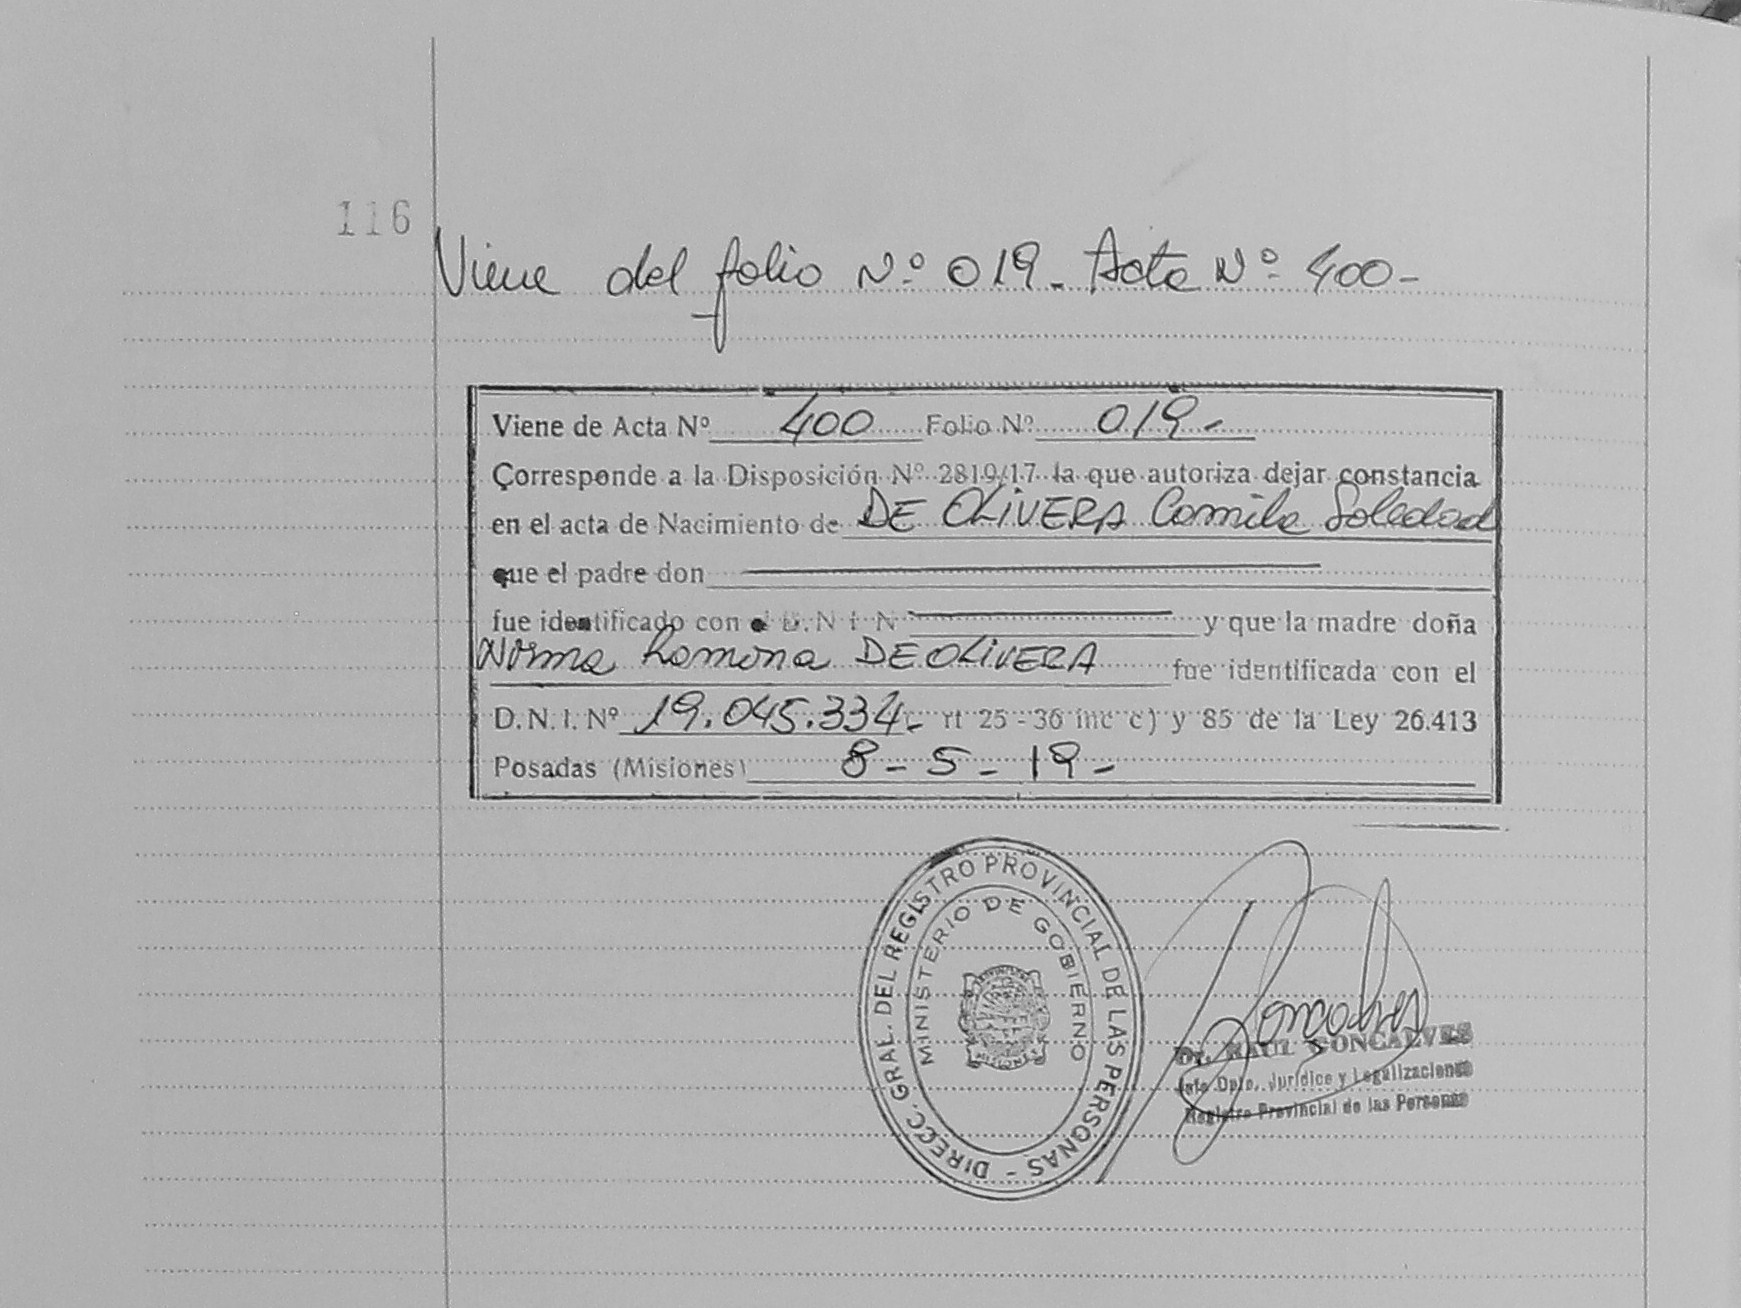 116
Viene del folio Nº 019. Acta Nº 400-
Viene de Acta Nº 400 Folio Nº 019-
Corresponde a la Disposición Nº 2819/17 la que autoriza dejar constancia
en el acta de Nacimiento de DE OLIVERA Camila Soledad
que el padre don
fue identificado con el D.N.I. N y que la madre doña
Norma Ramona DE OLIVERA fue identificada con el
D.N.I. Nº 19.045.334- rt 25 - 36 inc c) y 85 de la Ley 26.413
Posadas (Misiones) 8 - 5 - 19 -
DIRECC. GRAL. DEL REGISTRO PROVINCIAL DE LAS PERSONAS -
MINISTERIO DE GOBIERNO
MISIONES
Dr. RAUL GONCALVES
Jefe Dpto. Jurídico y Legalizaciones
Registro Provincial de las Personas